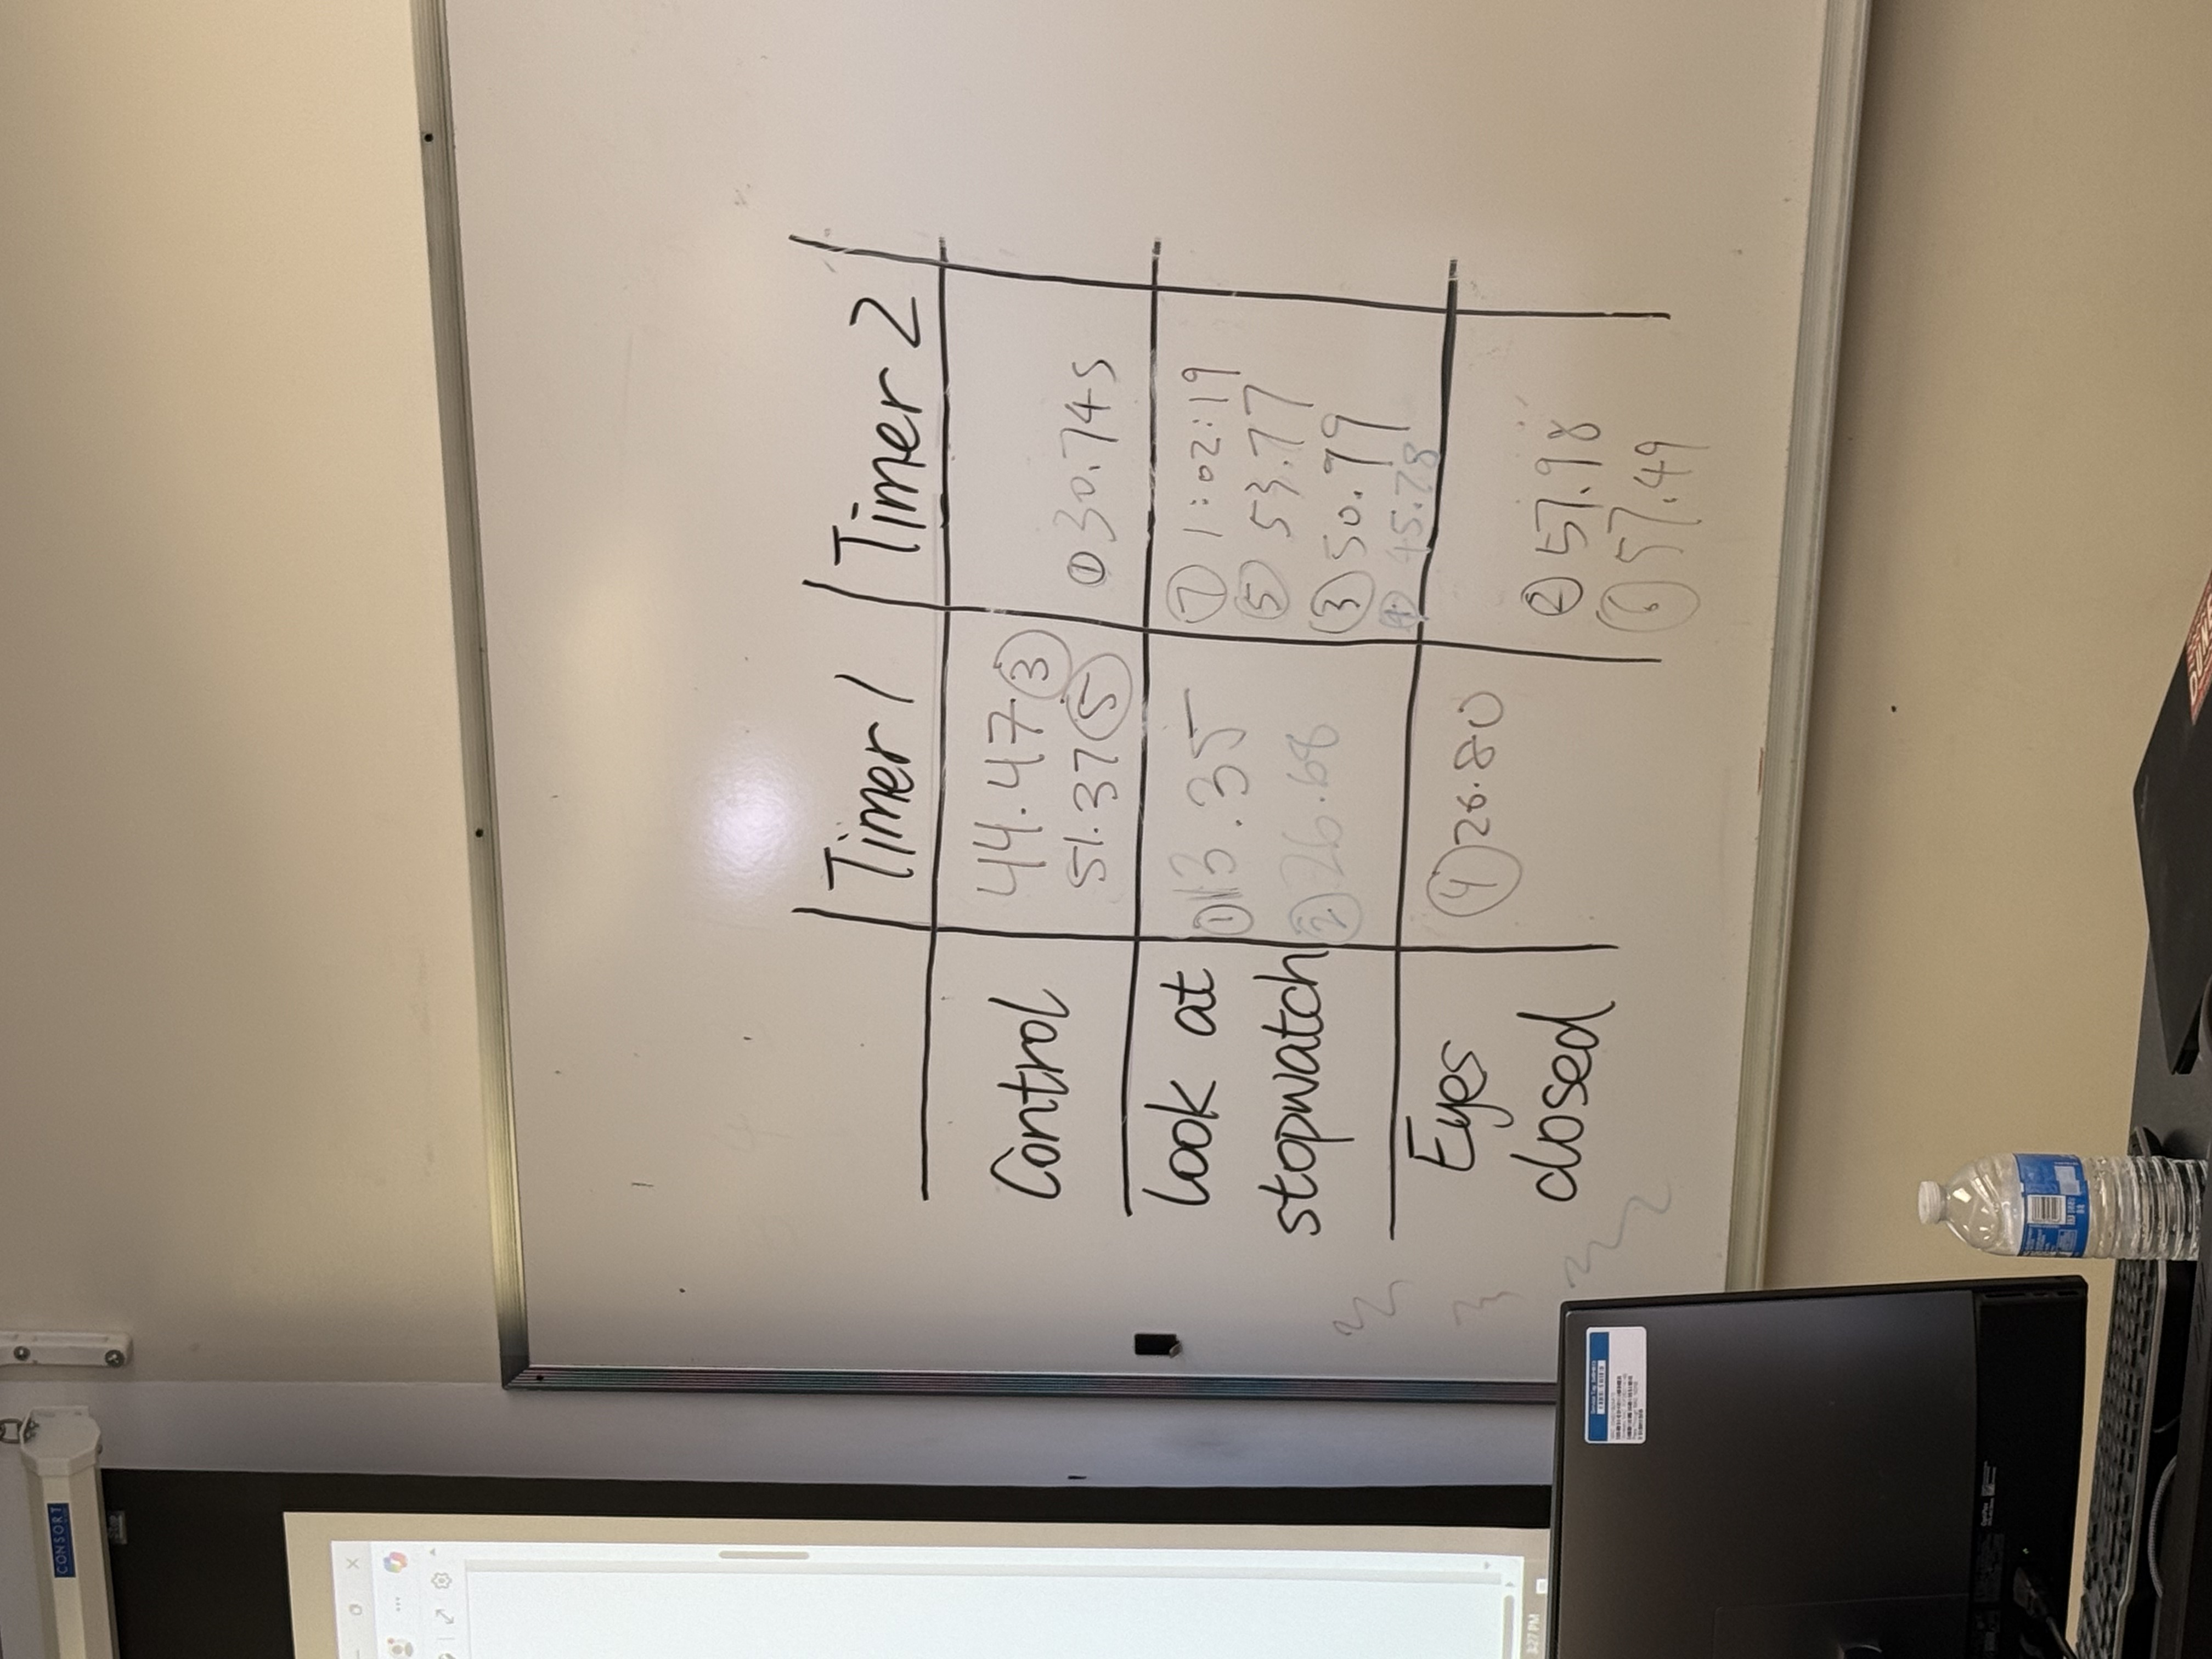 CONSORT
3:27 PM
Timer 1 Timer 2
Control
44.47 ③
51.37 ⑤
① 30.74s
look at
stopwatch
① 13.35
② 26.68
⑦ 1:02:19
⑤ 53.77
③ 50.99
④ 45.78
Eyes
closed
④ 26.80
② 57.98
⑥ 57.49
OptiPlex